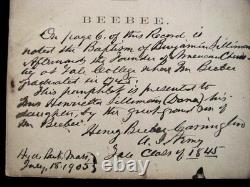 BEEBEE.
On page 6. of this Record is
noted the Baptism of Benjamin Silliman
Afterwards the Founder of American Chemis
try at Yale College where Mr Beebee
graduated in
This pamphlet is presented to
Mrs Henrietta Silliman (Dana) his
daughter, by the great grand son of
Mr Beebee.
Henry Beebee Carrington
U. S. Army
Yale Class of 1845
Hyde Park, Mass.
July, 18. 1903